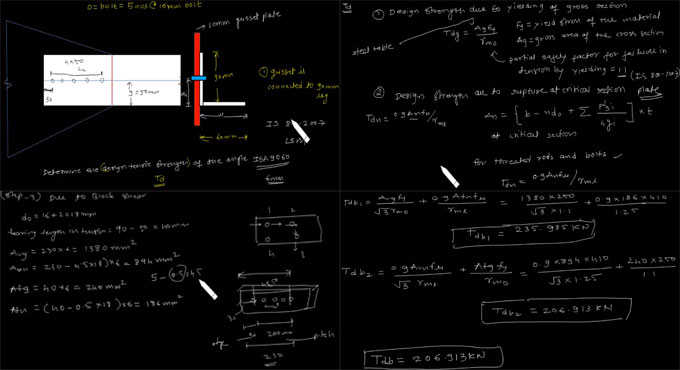 0 = bolt = 5 nos @ 16mm bolt
10mm gusset plate
4x50
Lc
30
g = 50mm
90mm
60mm
① gusset is
connected to 90mm
leg
IS 2007
LSM
Determine the (design tensile strength) of the angle ISA9060
Td
6mm
Td
① Design strength due to yielding of gross section
Tdg = Ag fy / γm0
fy = yield stress of the material
Ag = gross area of the cross section
steel table
partial safety factor for failure in
tension by yielding = 1.1 (IS 800-2007)
② Design strength due to rupture at critical section plate
Tdn = 0.9 An fu / γml
An = [b - nd0 + Σ Psi² / 4gi] x t
at critical section
for threaded rods and bolts
Tdn = 0.9 An fu / γml
(Step-3) Due to Block shear
d0 = 16+2 = 18mm
bearing length in tension = 90 - 50 = 40mm
Avg = 230x6 = 1380mm²
Avn = (230 - 4.5x18)x6 = 894mm²
Atg = 40x6 = 240mm²
Atn = (40 - 0.5x18)x6 = 186mm²
5 - 0.5 = 4.5
1 2
4 3
30 200mm
edge
pitch
230
Tdb1 = Avg fy / √3 γm0 + 0.9 Atn fu / γml = 1380 x 250 / √3 x 1.1 + 0.9 x 186 x 410 / 1.25
Tdb1 = 235.985 KN
Tdb2 = 0.9 Avn fu / √3 γml + Atg fy / γm0 = 0.9 x 894 x 410 / √3 x 1.25 + 240 x 250 / 1.1
Tdb2 = 206.913 KN
Tdb = 206.913 KN